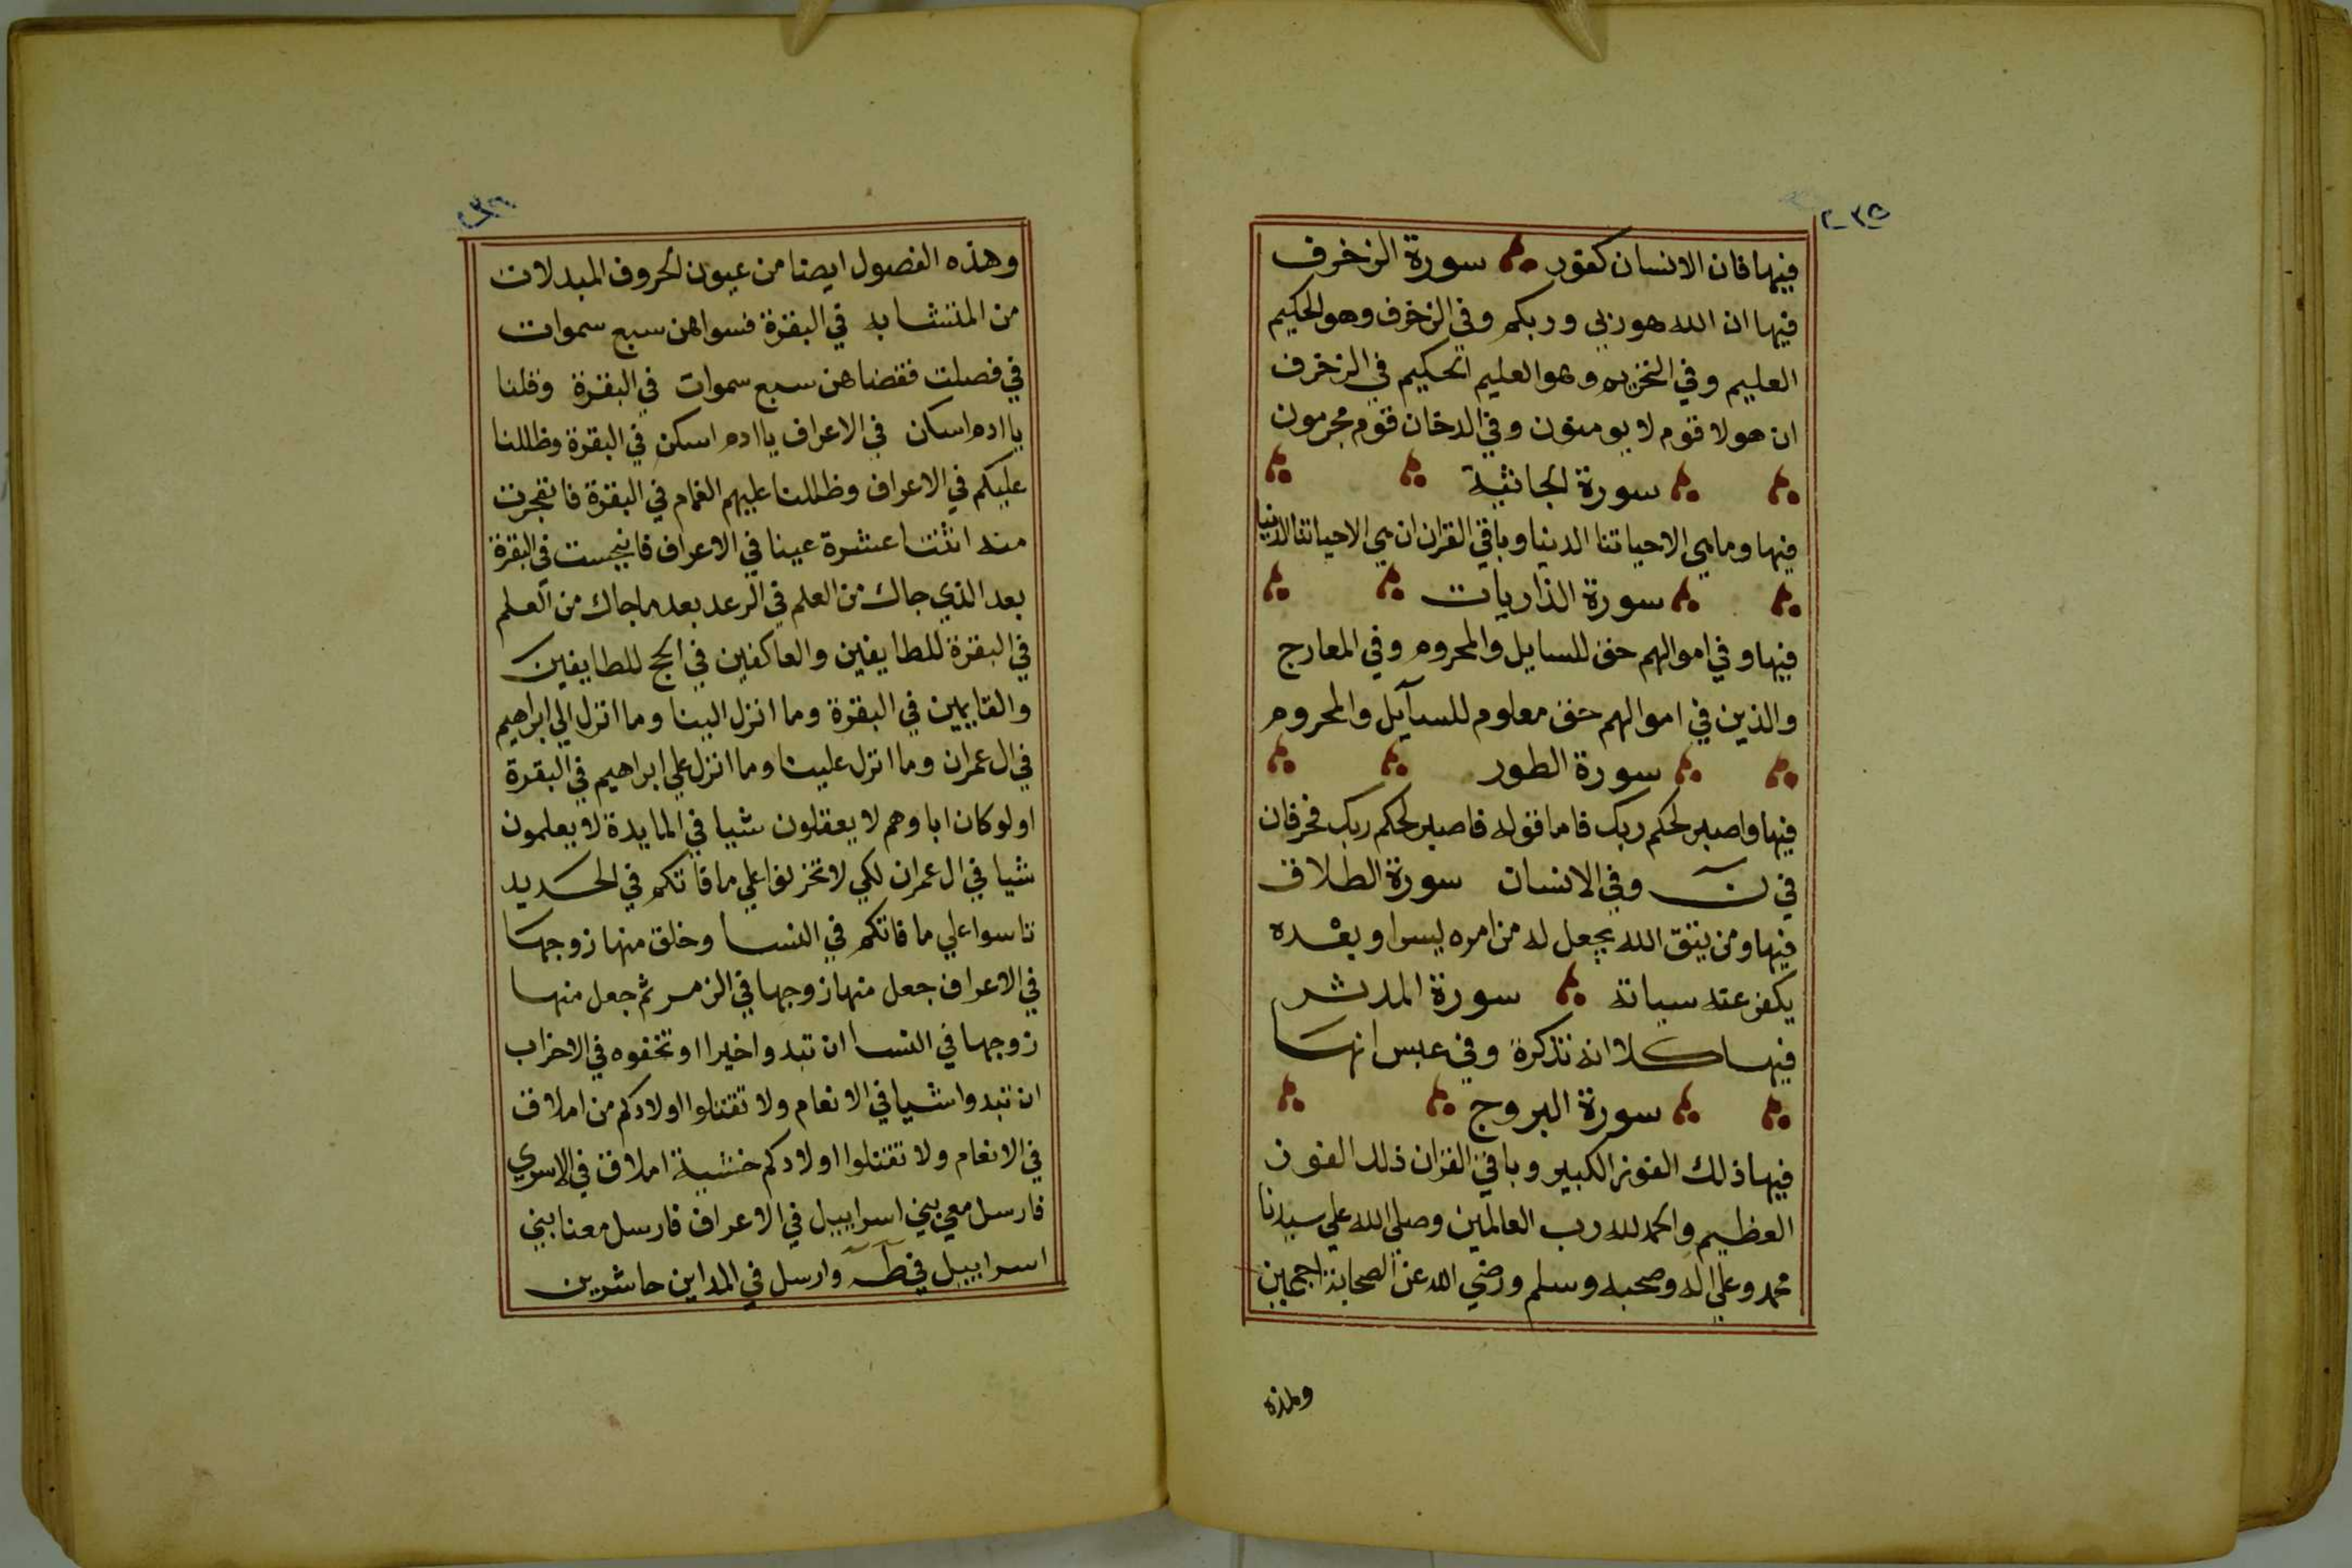 ٢٣٥
فيها فان الانسان كفور سورة الزخرف
فيها ان الله هو ربي وربكم وفي الزخرف وهو الحكيم
العليم وفي التحريم وهو العليم الحكيم في الزخرف
ان هولا قوم لا يومنون وفي الدخان قوم مجرمون
سورة الجاثية
فيها وما هي الا حياتنا الدنيا وباقي القران ان هي الا حياتنا الدنيا
سورة الذاريات
فيها وفي اموالهم حق للسايل والمحروم وفي المعارج
والذين في اموالهم حق معلوم للسآيل والمحروم
سورة الطور
فيها واصبر لحكم ربك فاما قوله فاصبر لحكم ربك فحرفان
في نۤ وفي الانسان سورة الطلاق
فيها ومن يتق الله يجعل له من امره يسرا وبعْده
يكفر عنه سياته سورة المدثر
فيها كلا انه تذكرة وفي عبس انها
سورة البروج
فيها ذلك الفوز الكبير وباقي القران ذلك الفوز
العظيم والحمد لله رب العالمين وصلي الله علي سيدنا
محمد وعلي اله وصحبه وسلم ورضي الله عن الصحابة اجمعين
وهذه
وهذه الفصول ايضا من عيون الحروف المبدلات
من المتشابه في البقرة فسواهن سبع سموات
في فصلت فقضاهن سبع سموات في البقرة وقلنا
يا ادم اسكن في الاعراف يا ادم اسكن في البقرة وظللنا
عليكم في الاعراف وظللنا عليهم الغمام في البقرة فانفجرت
منه اثنتا عشرة عينا في الاعراف فانبجست في البقرة
بعد الذي جاك من العلم في الرعد بعد ما جاك من العلم
في البقرة للطايفين والعاكفين في الحج للطايفين
والقايمين في البقرة وما انزل الينا وما انزل الي ابراهيم
في ال عمران وما انزل علينا وما انزل علي ابراهيم في البقرة
اولو كان اباوهم لا يعقلون شيا في المايدة لا يعلمون
شيا في ال عمران لكي لا تحزنوا علي ما فاتكم في الحديد
تاسوا علي ما فاتكم في النسا وخلق منها زوجها
في الاعراف جعل منها زوجها في الزمر ثم جعل منها
زوجها في النسا ان تبدوا خيرا او تخفوه في الاحزاب
ان تبدوا شيا في الانعام ولا تقتلوا اولادكم من املاق
في الانعام ولا تقتلوا اولادكم خشية املاق في الاسري
فارسل معي بني اسراييل في الاعراف فارسل معنا بني
اسراييل في طۤه وارسل في المداين حاشرين